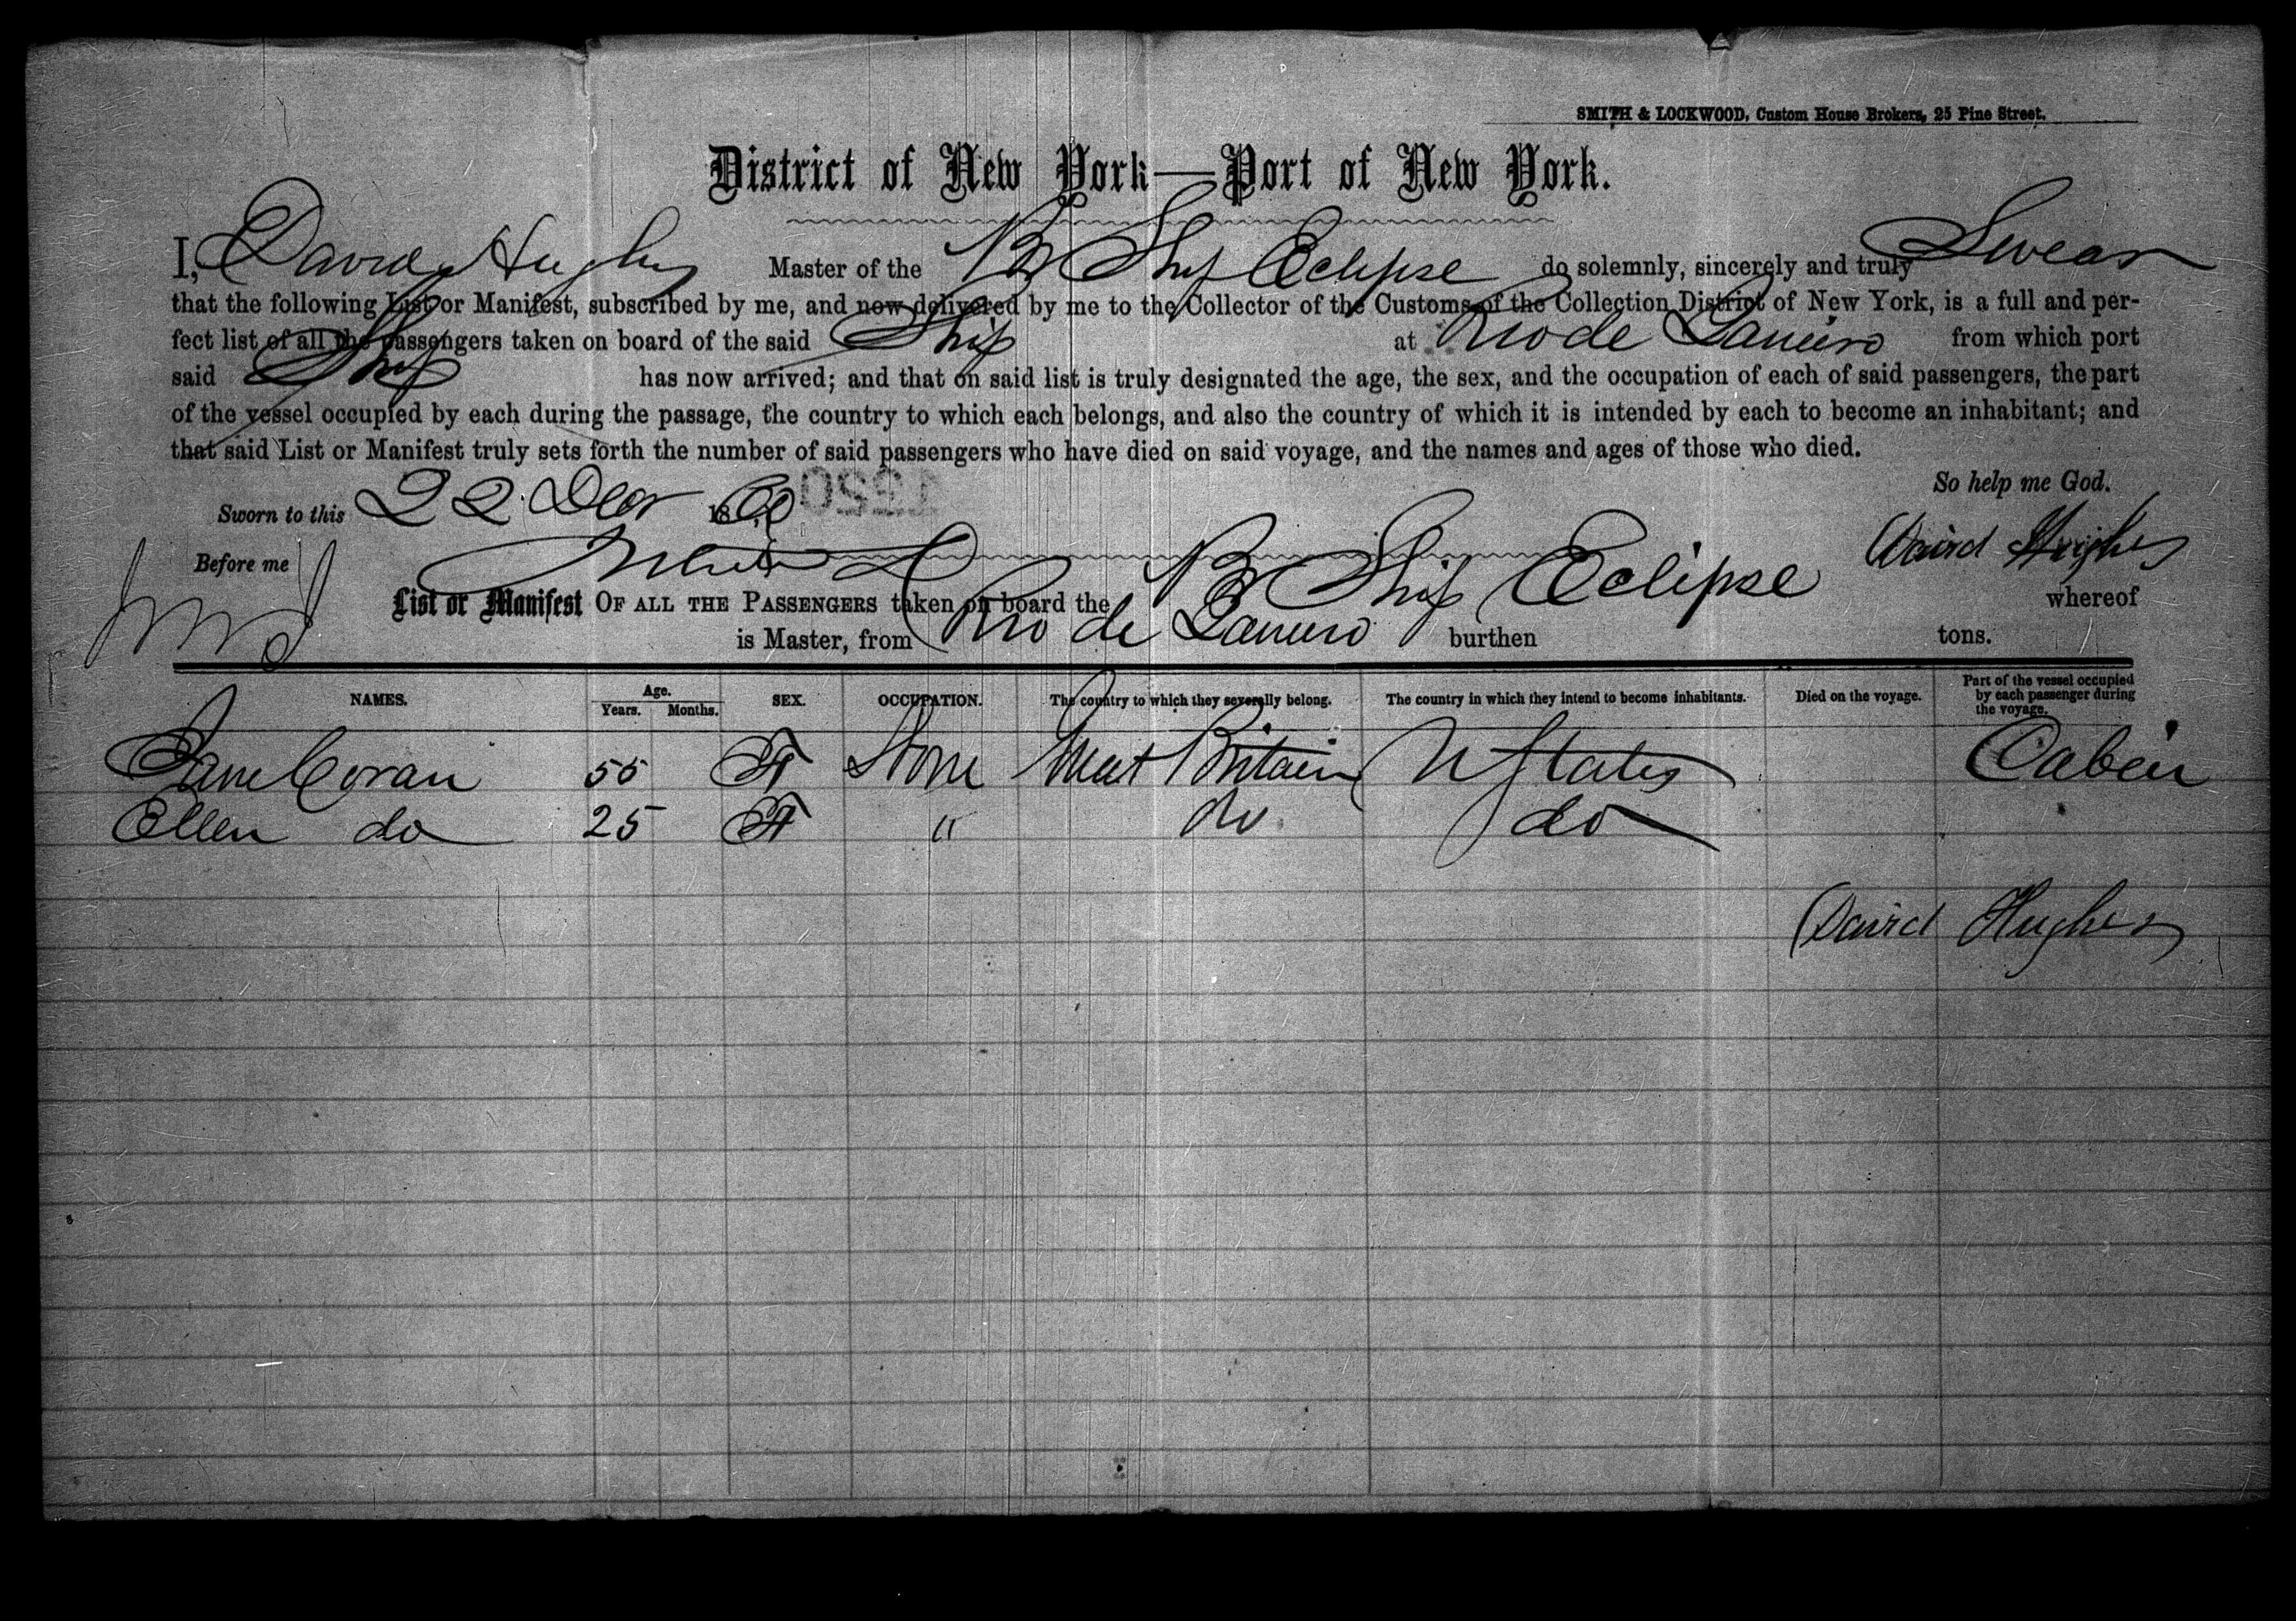 SMITH & LOCKWOOD, Custom House Brokers, 25 Pine Street.
District of New York—Port of New York.
I, David Hughes Master of the Br Ship Eclipse do solemnly, sincerely and truly Swear
that the following List or Manifest, subscribed by me, and now delivered by me to the Collector of the Customs of the Collection District of New York, is a full and per-
fect list of all the passengers taken on board of the said Ship at Rio de Janeiro from which port
said Ship has now arrived; and that on said list is truly designated the age, the sex, and the occupation of each of said passengers, the part
of the vessel occupied by each during the passage, the country to which each belongs, and also the country of which it is intended by each to become an inhabitant; and
that said List or Manifest truly sets forth the number of said passengers who have died on said voyage, and the names and ages of those who died.
So help me God.
Sworn to this 22 Decr 18 1320
David Hughes
Before me
List or Manifest OF ALL THE PASSENGERS taken on board the Br Ship Eclipse whereof
is Master, from Rio de Janeiro burthen tons.
NAMES. Age. Years. Months. SEX. OCCUPATION. The country to which they severally belong. The country in which they intend to become inhabitants. Died on the voyage. Part of the vessel occupied by each passenger during the voyage.
Jane Coran 55 F None Great Britain U States Cabin
Ellen do 25 F " do do
David Hughes